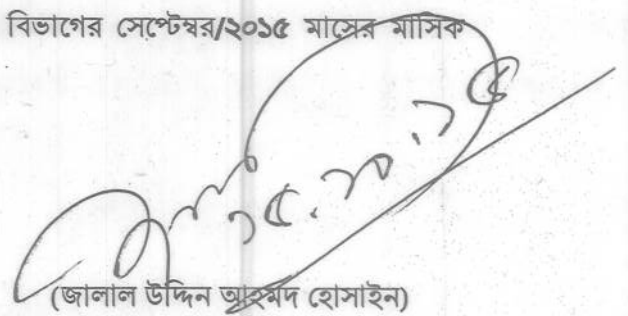 বিভাগের সেপ্টেম্বর/২০১৫ মাসের মাসিক
১৫.১০.১৫
(জালাল উদ্দিন আহমদ হোসাইন)